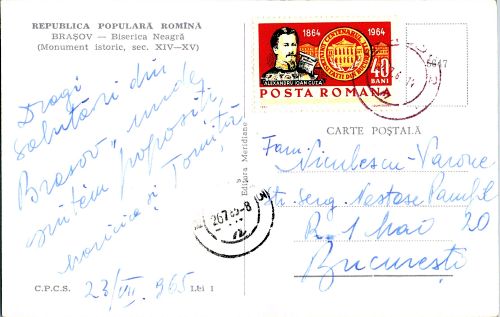 REPUBLICA POPULARĂ ROMÎNĂ
BRAȘOV — Biserica Neagră
(Monument istoric, sec. XIV—XV)
Dragi
salutări din
Brașov, unde
sîntem poposiți
și Tomiță
23/VII. 965
C.P.C.S.
Lei 1
Editura Meridiane
1864 1964
ALEXANDRU IOAN CUZA
40
BANI
POSTA ROMANA
CARTE POȘTALĂ
Fam.
Niculescu-Varone
Str. Serg. Nestase Pamfil
R. 1 Mai 20
București